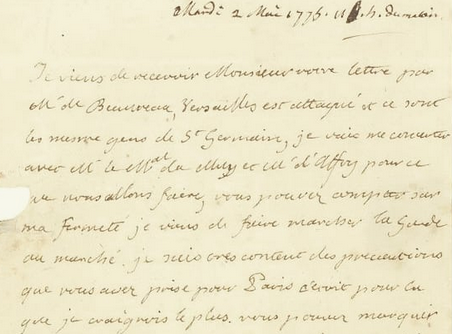 Mardi 2 Mai 1775. 11 h. du matin
Je viens de recevoir Monsieur votre lettre par
Mr de Beauveau, Versailles est attaqué et ce sont
les mesme gens de St Germain, je vais me concerter
avec Mr le Mal du Muy et Mr d'Affry pour ce
que nous allons faire, vous pouvez compter sur
ma fermeté je viens de faire marcher la Garde
au marché. je suis tres content des precautions
que vous avez prise pour Paris c'etoit pour la
que je craignois le plus. vous pouvez marquer